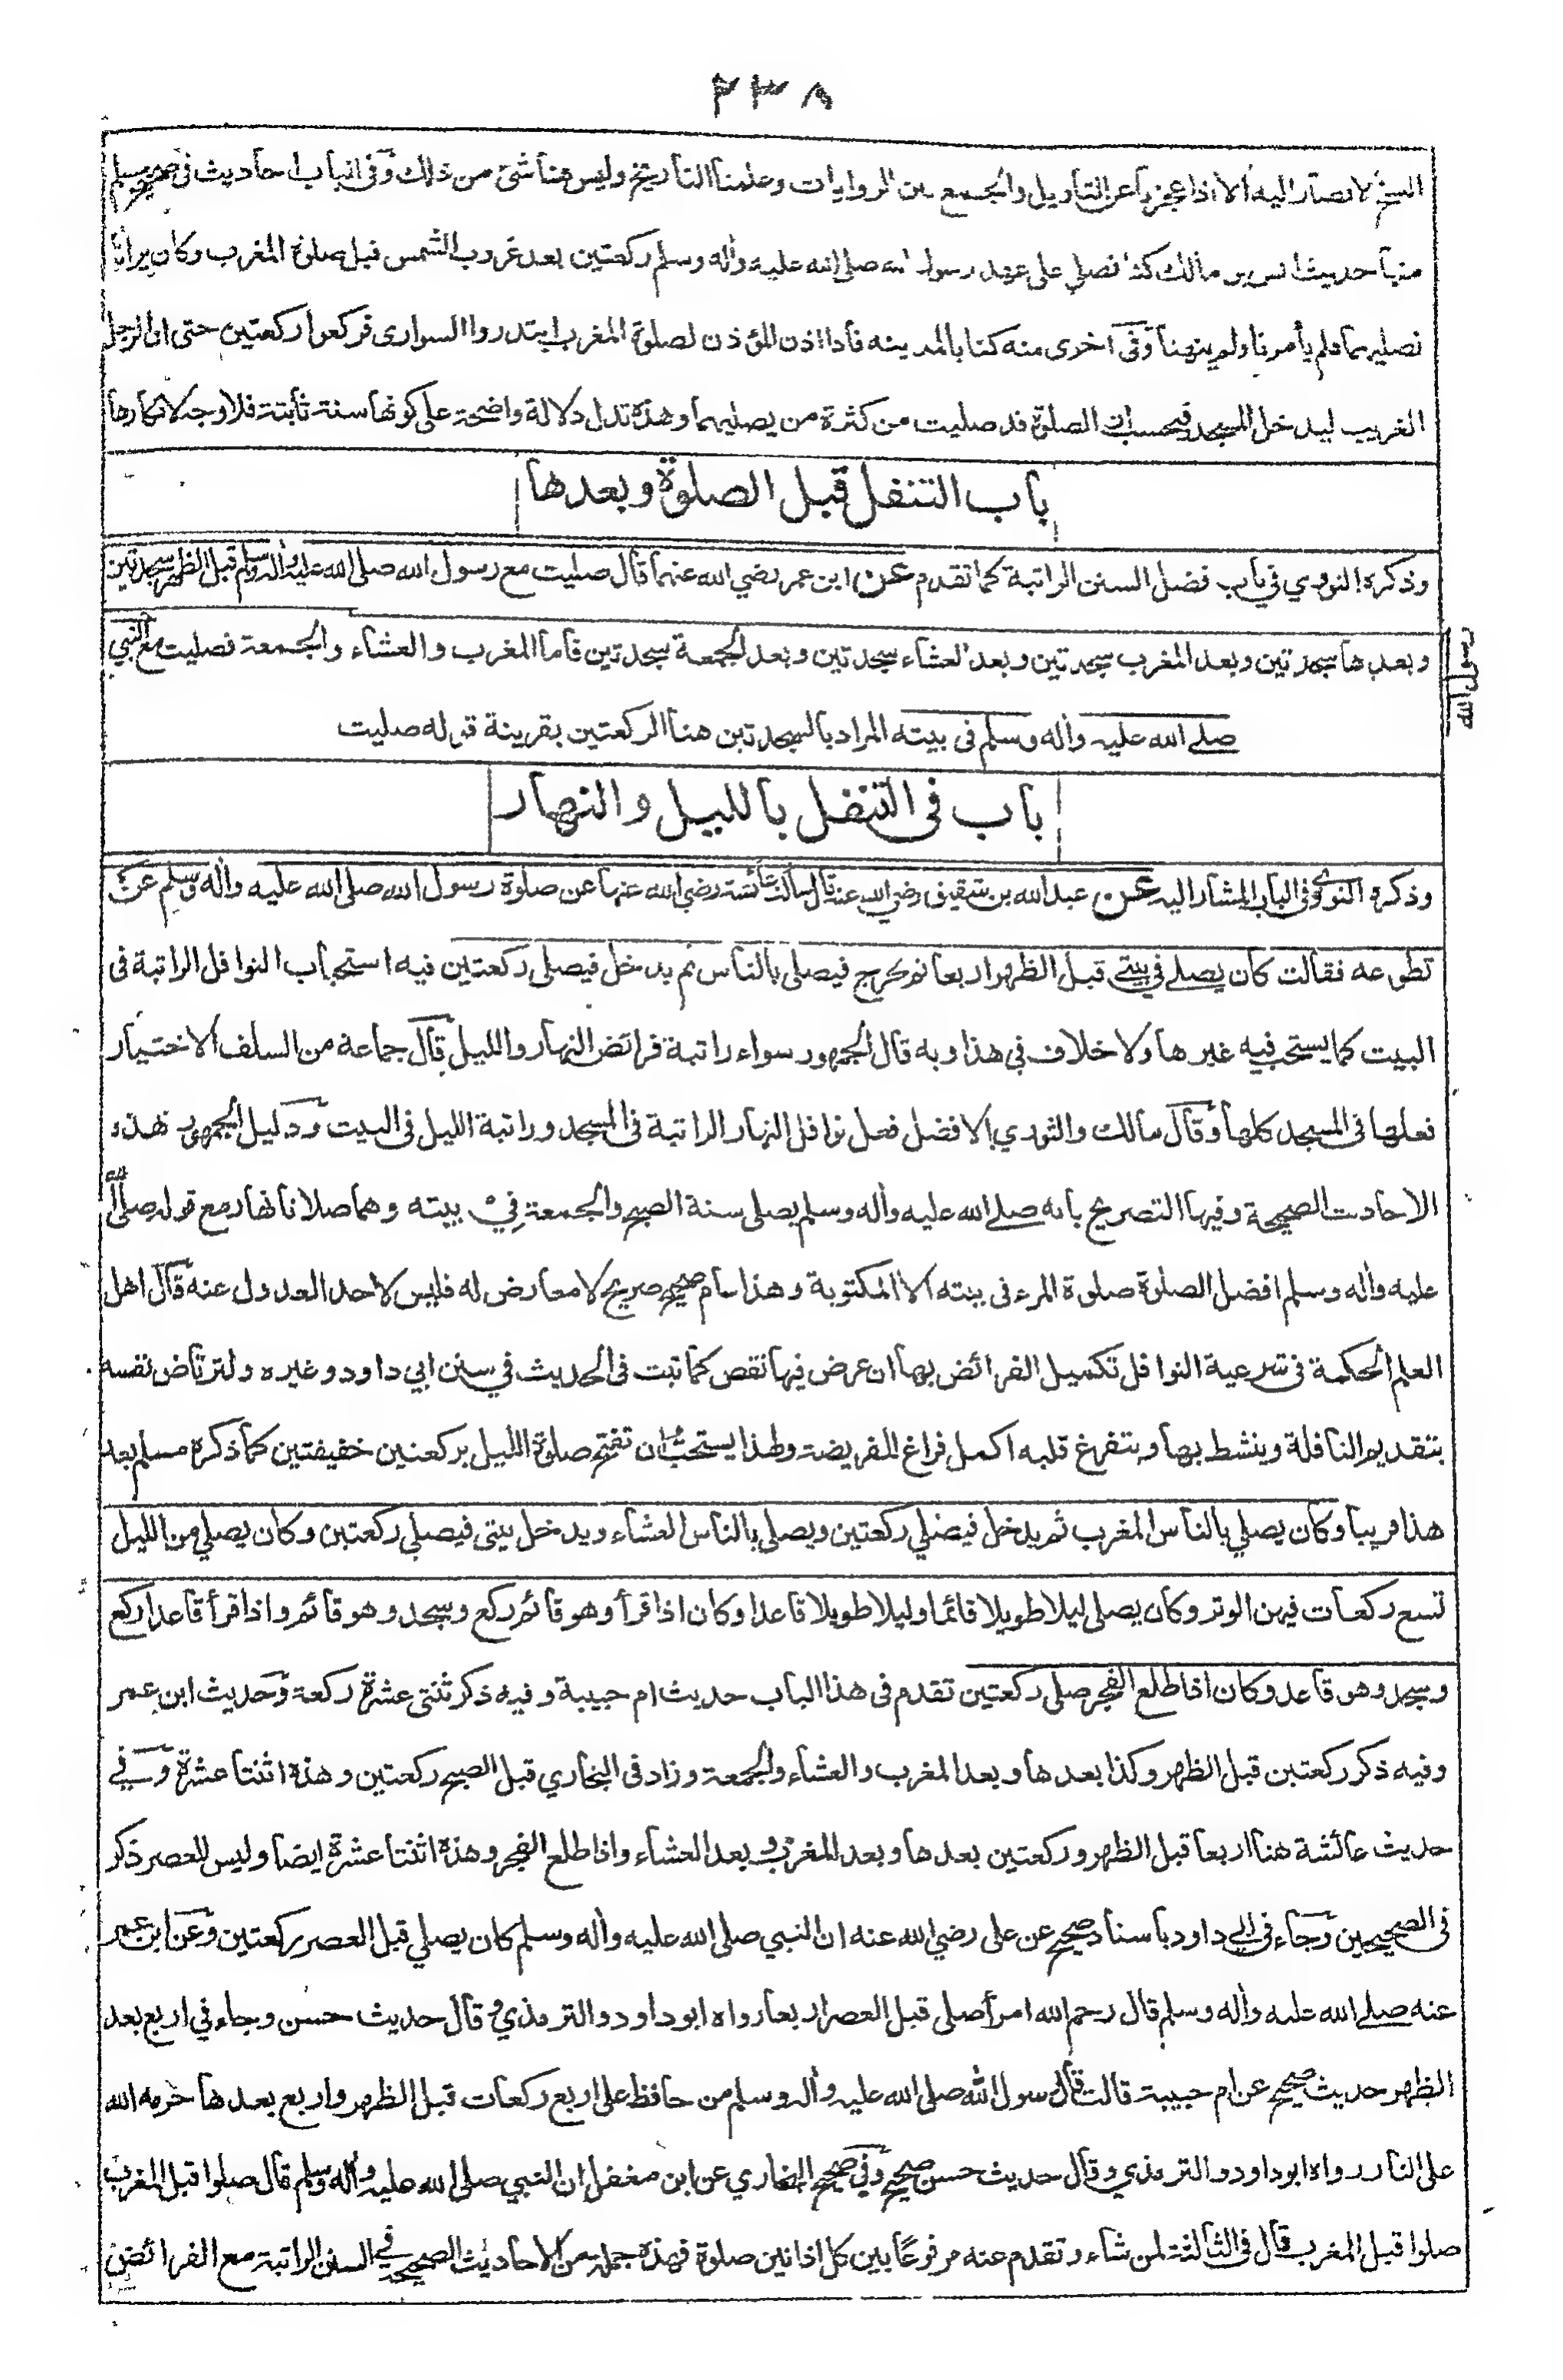 ٢٣٨
النسخ لا يصار اليه الا اذا عجزنا عن التاويل والجمع بين الروايات وعلمنا التاريخ وليس هنا شئ من ذلك وفى الباب احاديث فى صحيح مسلم
منها حديث انس بن مالك كنا نصلي على عهد رسول الله صلى الله عليه واٰله وسلم ركعتين بعد غروب الشمس قبل صلوة المغرب وكان يرانا
نصليهما فلم يأمرنا ولم ينهنا وفى اخرى منه كنا بالمدينه فاذا اذن المؤذن لصلوة المغرب ابتدروا السوارى فركعوا ركعتين حتى ان الرجل
الغريب ليدخل المسجد فيحسب ان الصلوة قد صليت من كثرة من يصليهما وهذه تدل دلالة واضحة على كونها سنة ثابتة فلا وجه لانكارها
باب التنفل قبل الصلوة وبعدها
وذكره النووي في باب فضل السنن الراتبة كما تقدم عن ابن عمر رضي الله عنهما قال صليت مع رسول الله صلى الله عليه واٰله وسلم قبل الظهر سجدتين
وبعدها سجدتين وبعد المغرب سجدتين وبعد العشاء سجدتين وبعد الجمعة سجدتين فاما المغرب والعشاء والجمعة فصليت مع النبي
رسول الله
صلے الله عليه واٰله وسلم فى بيته المراد بالسجدتين هنا الركعتين بقرينة قوله صليت
باب فى التنفل بالليل والنهار
وذكره النووي فى الباب المشار اليه عن عبد الله بن شقيق رضي الله عنه قال سالت عائشة رضي الله عنها عن صلوة رسول الله صلى الله عليه واٰله وسلم عن
تطوعه فقالت كان يصلے في بيتے قبل الظهر اربعا ثم يخرج فيصلى بالناس ثم يدخل فيصلى ركعتين فيه استحباب النوافل الراتبة فى
البيت كما يستحب فيه غيرها ولا خلاف فى هذا وبه قال الجمهور سواء راتبة فرائض النهار والليل قال جماعة من السلف الاختيار
فعلها فى المسجد كلها وقال مالك والثوري الافضل فعل نوافل النهار الراتبة فى المسجد وراتبة الليل فى البيت ودليل الجمهور هذه
الاحاديث الصحيحة وفيها التصريح بانه صلے الله عليه واٰله وسلم يصلى سنة الصبح والجمعة في بيته وهما صلاتا نهار مع قوله صلى الله
عليه واٰله وسلم افضل الصلوة صلوة المرء فى بيته الا المكتوبة وهذا عام صحيح صريح لا معارض له فليس لاحد العدول عنه قال اهل
العلم الحكمة فى شرعية النوافل تكميل الفرائض بها ان عرض فيها نقص كما ثبت فى الحديث في سنن ابي داود وغيره ولترتاض نفسه
بتقديم النافلة وينشط بها ويتفرغ قلبه اكمل فراغ للفريضة ولهذا يستحب ان تفتح صلوة الليل بركعتين خفيفتين كما ذكره مسلم بعد
هذا قريبا وكان يصلي بالناس المغرب ثم يدخل فيصلي ركعتين ويصلى بالناس العشاء ويدخل بيتى فيصلي ركعتين وكان يصلي من الليل
تسع ركعات فيهن الوتر وكان يصلى ليلا طويلا قائما وليلا طويلا قاعدا وكان اذا قرأ وهو قائم ركع وسجد وهو قائم واذا قرأ قاعدا ركع
وسجد وهو قاعد وكان اذا طلع الفجر صلى ركعتين تقدم فى هذا الباب حديث ام حبيبة وفيه ذكر ثنتى عشرة ركعة وحديث ابن عمر
وفيه ذكر ركعتين قبل الظهر وكذا بعدها وبعد المغرب والعشاء والجمعة وزاد فى البخاري قبل الصبح ركعتين وهذه اثنتا عشرة وفي
حديث عائشة هنا اربعا قبل الظهر وركعتين بعدها وبعد المغرب وبعد العشاء واذا طلع الفجر وهذه اثنتا عشرة ايضا وليس للعصر ذكر
فى الصحيحين وجاء فى ابي داود باسناد صحيح عن على رضي الله عنه ان النبي صلى الله عليه واٰله وسلم كان يصلي قبل العصر ركعتين وعن ابن عمر
عنه صلے الله عليه واٰله وسلم قال رحم الله امرأ صلى قبل العصر اربعا رواه ابوداود والترمذي وقال حديث حسن وجاء في اربع بعد
الظهر حديث صحيح عن ام حبيبة قالت قال رسول الله صلى الله عليه واٰله وسلم من حافظ على اربع ركعات قبل الظهر واربع بعدها حرمه الله
على النار رواه ابوداود والترمذي وقال حديث حسن صحيح وفى صحيح البخاري عن ابن مغفل ان النبي صلى الله عليه واٰله وسلم قال صلوا قبل المغرب
صلوا قبل المغرب قال فى الثالثة لمن شاء وتقدم عنه مرفوعًا بين كل اذانين صلوة فهذه جملة من الاحاديث الصحيحة في السنن الراتبة مع الفرائض